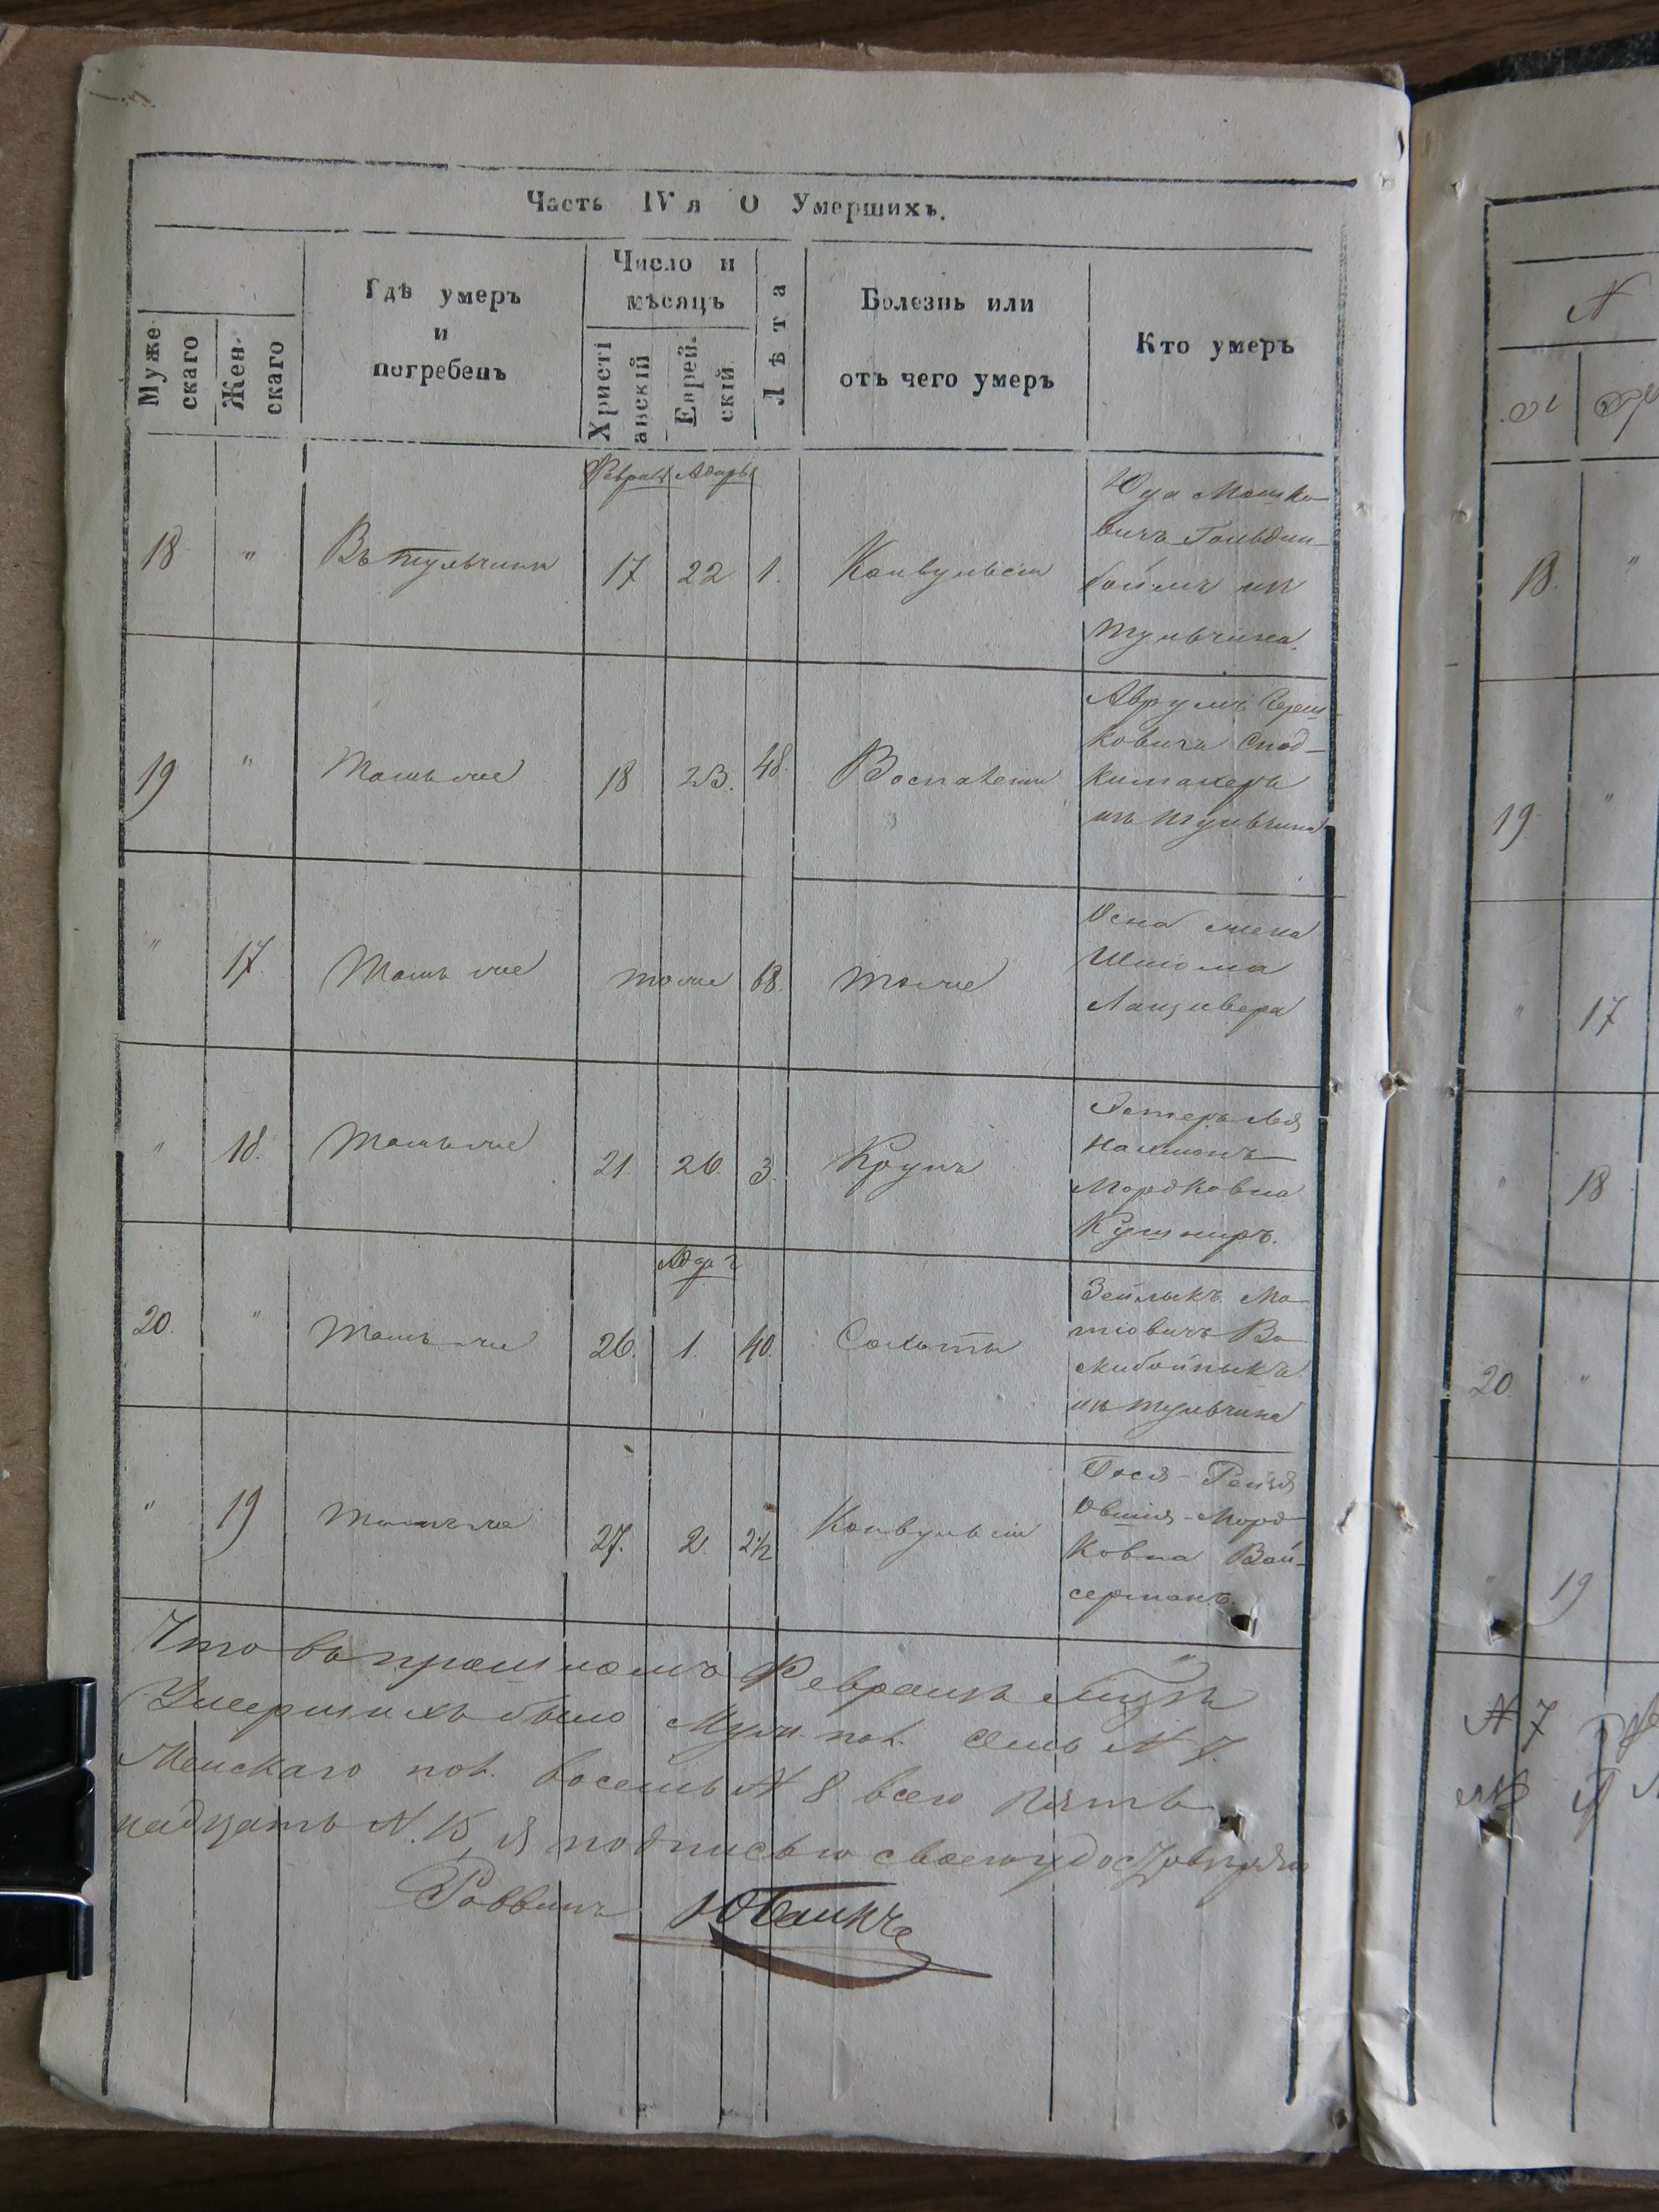 Часть IV я О Умершихъ.
Муже
скаго
Жен-
скаго
Гдѣ умеръ
и
погребенъ
Число и
мѣсяцъ
Христі
анскій
Еврей-
скій
Лѣта
Болезнь или
отъ чего умеръ
Кто умеръ
Февраля Адаръ
18 " Въ Тульчинѣ 17 22 1. Конвульсіи
Юда Мошко-
вичъ Гольдин-
боймъ изъ
Тульчина.
19 " Тамъ же 18 23. 48. Воспаленіи
Аврумъ Герш-
ковичъ Спод-
китмахеръ
изъ Тульчина
" 17. Тамъ же тоже 68. тоже
Осна жена
Шлома
Ланцнера
" 18. Тамъ же 21. 26. 3. Крупъ
Эстеръ Лея
Мордковна
Кушниръ.
Адаръ 2
20. " Тамъ же 26. 1. 40. Сухоты
Зейлыкъ Мо-
тіовичъ Во-
изъ Тульчина
" 19 Тамъ же 27. 2. 2½ Конвульсіи
Гося-Рейзя
Овшія-Морд
ковна Вай-
серманъ.
Что въ прошломъ Февралѣ м-цѣ
Умершихъ было Муж. пол. семь № 7.
Женскаго пол. восемь № 8 всего пять
надцать №. 15, я подписью своею удостовѣряю
Раввинъ
N
18. "
19. "
" 17
" 18
20. "
" 19
№ 7